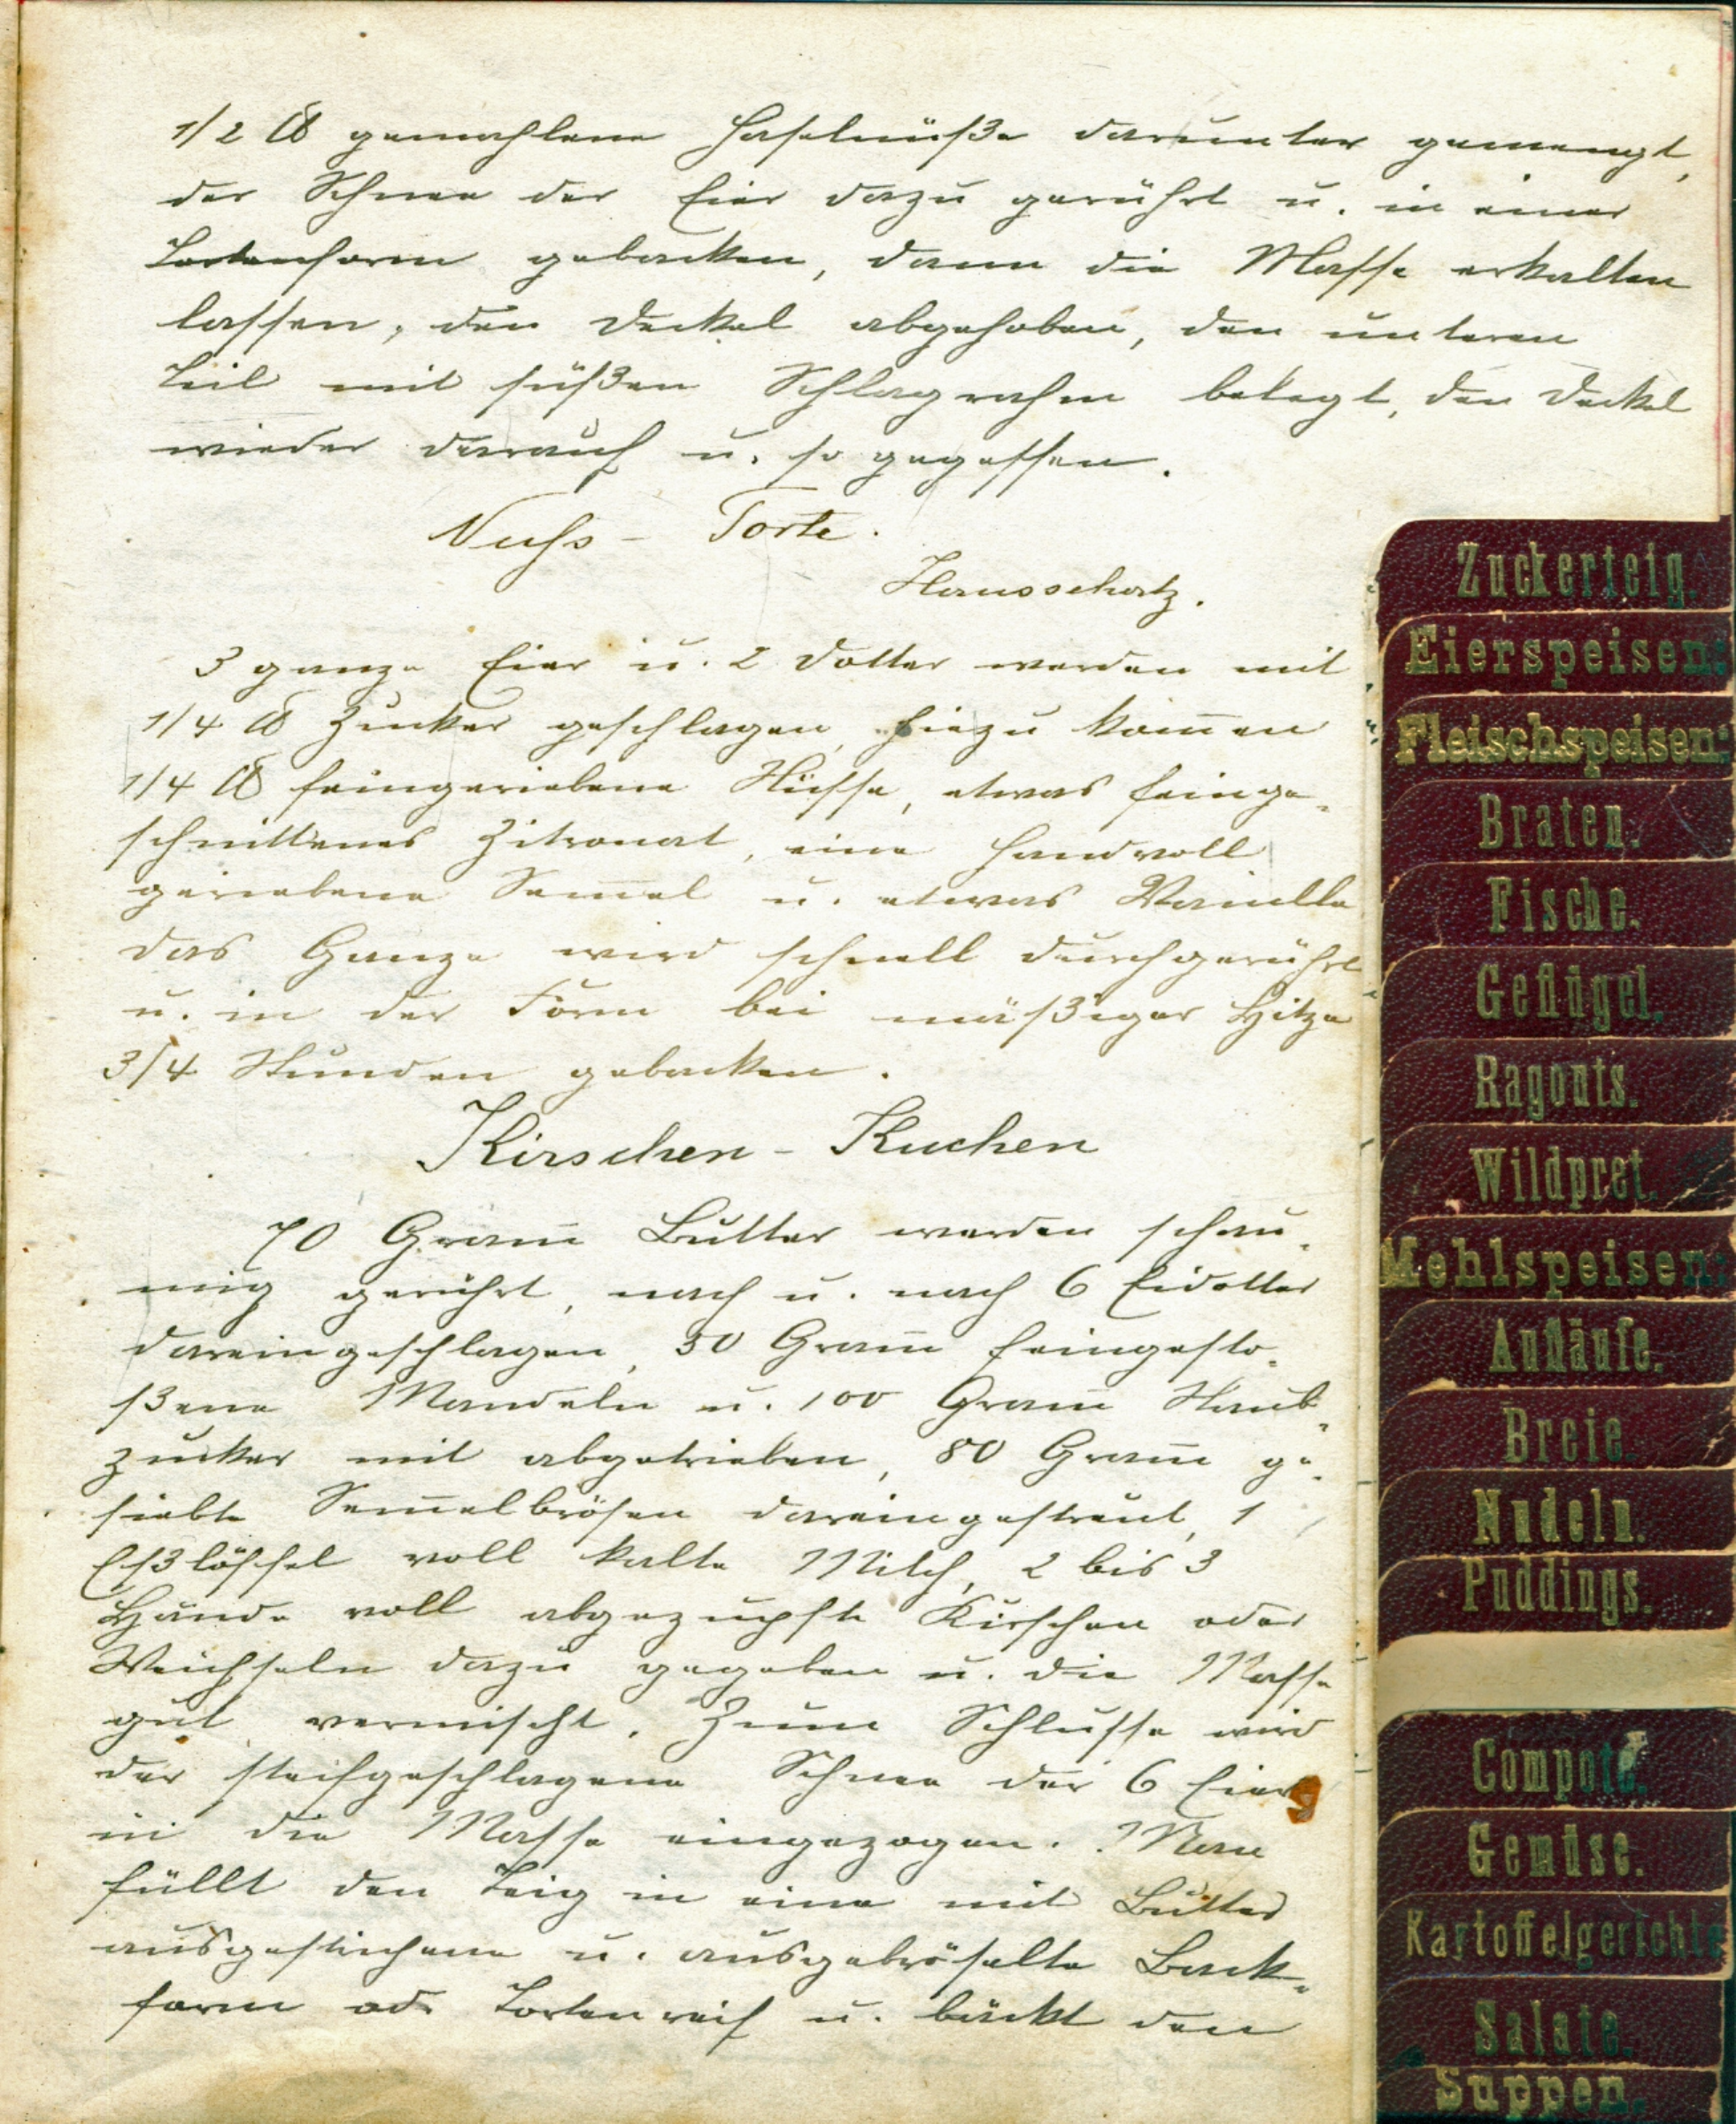 1/2 ℔ gemahlene Haselnüße darunter gemengt,
der Schnee der Eier dazu gerührt u. in einer
Tortenform gebacken, dann die Masse erkalten
lassen, den Deckel abgehoben, den unteren
Teil mit süßen Schlagrahm belegt, den Deckel
wieder darauf u. so gegessen.
Nuss - Torte.
Hausschatz.
3 ganze Eier u. 2 Dotter werden mit
1/4 ℔ Zucker geschlagen, hiezu kom̅en
1/4 ℔ feingeriebene Nüsse, etwas feinge-
schnittenes Zitronat, eine Handvoll
geriebene Sem̅el u. etwas Vanille
das Ganze wird schnell durchgerührt
u. in der Form bei mäßiger Hitze
3/4 Stunden gebacken.
Kirschen - Kuchen
70 Gram̅ Butter werden schau-
mig gerührt, nach u. nach 6 Eidotter
dareingeschlagen, 50 Gram̅ feingesto-
ßene Mandeln u. 100 Gram̅ Staub-
zucker mit abgetrieben, 80 Gram̅ ge-
siebte Sem̅elbrösen dareingestreut, 1
Eßlöffel voll kalte Milch, 2 bis 3
Hände voll abgezupfte Kirschen oder
Weichseln dazu gegeben u. die Masse
gut vermischt. Zum Schlusse wird
der steifgeschlagene Schnee der 6 Eier
in die Masse eingezogen. Man
füllt den Teig in eine mit Butter
ausgestrichene u. ausgebröselte Back-
form odr Tortenreif u. bäckt den
Zuckerteig.
Eierspeisen:
Fleischspeisen:
Braten.
Fische.
Geflügel.
Ragouts.
Wildpret.
Mehlspeisen:
Aufläufe.
Breie.
Nudeln.
Puddings.
Compote.
Gemüse.
Kartoffelgerichte
Salate.
Suppen.